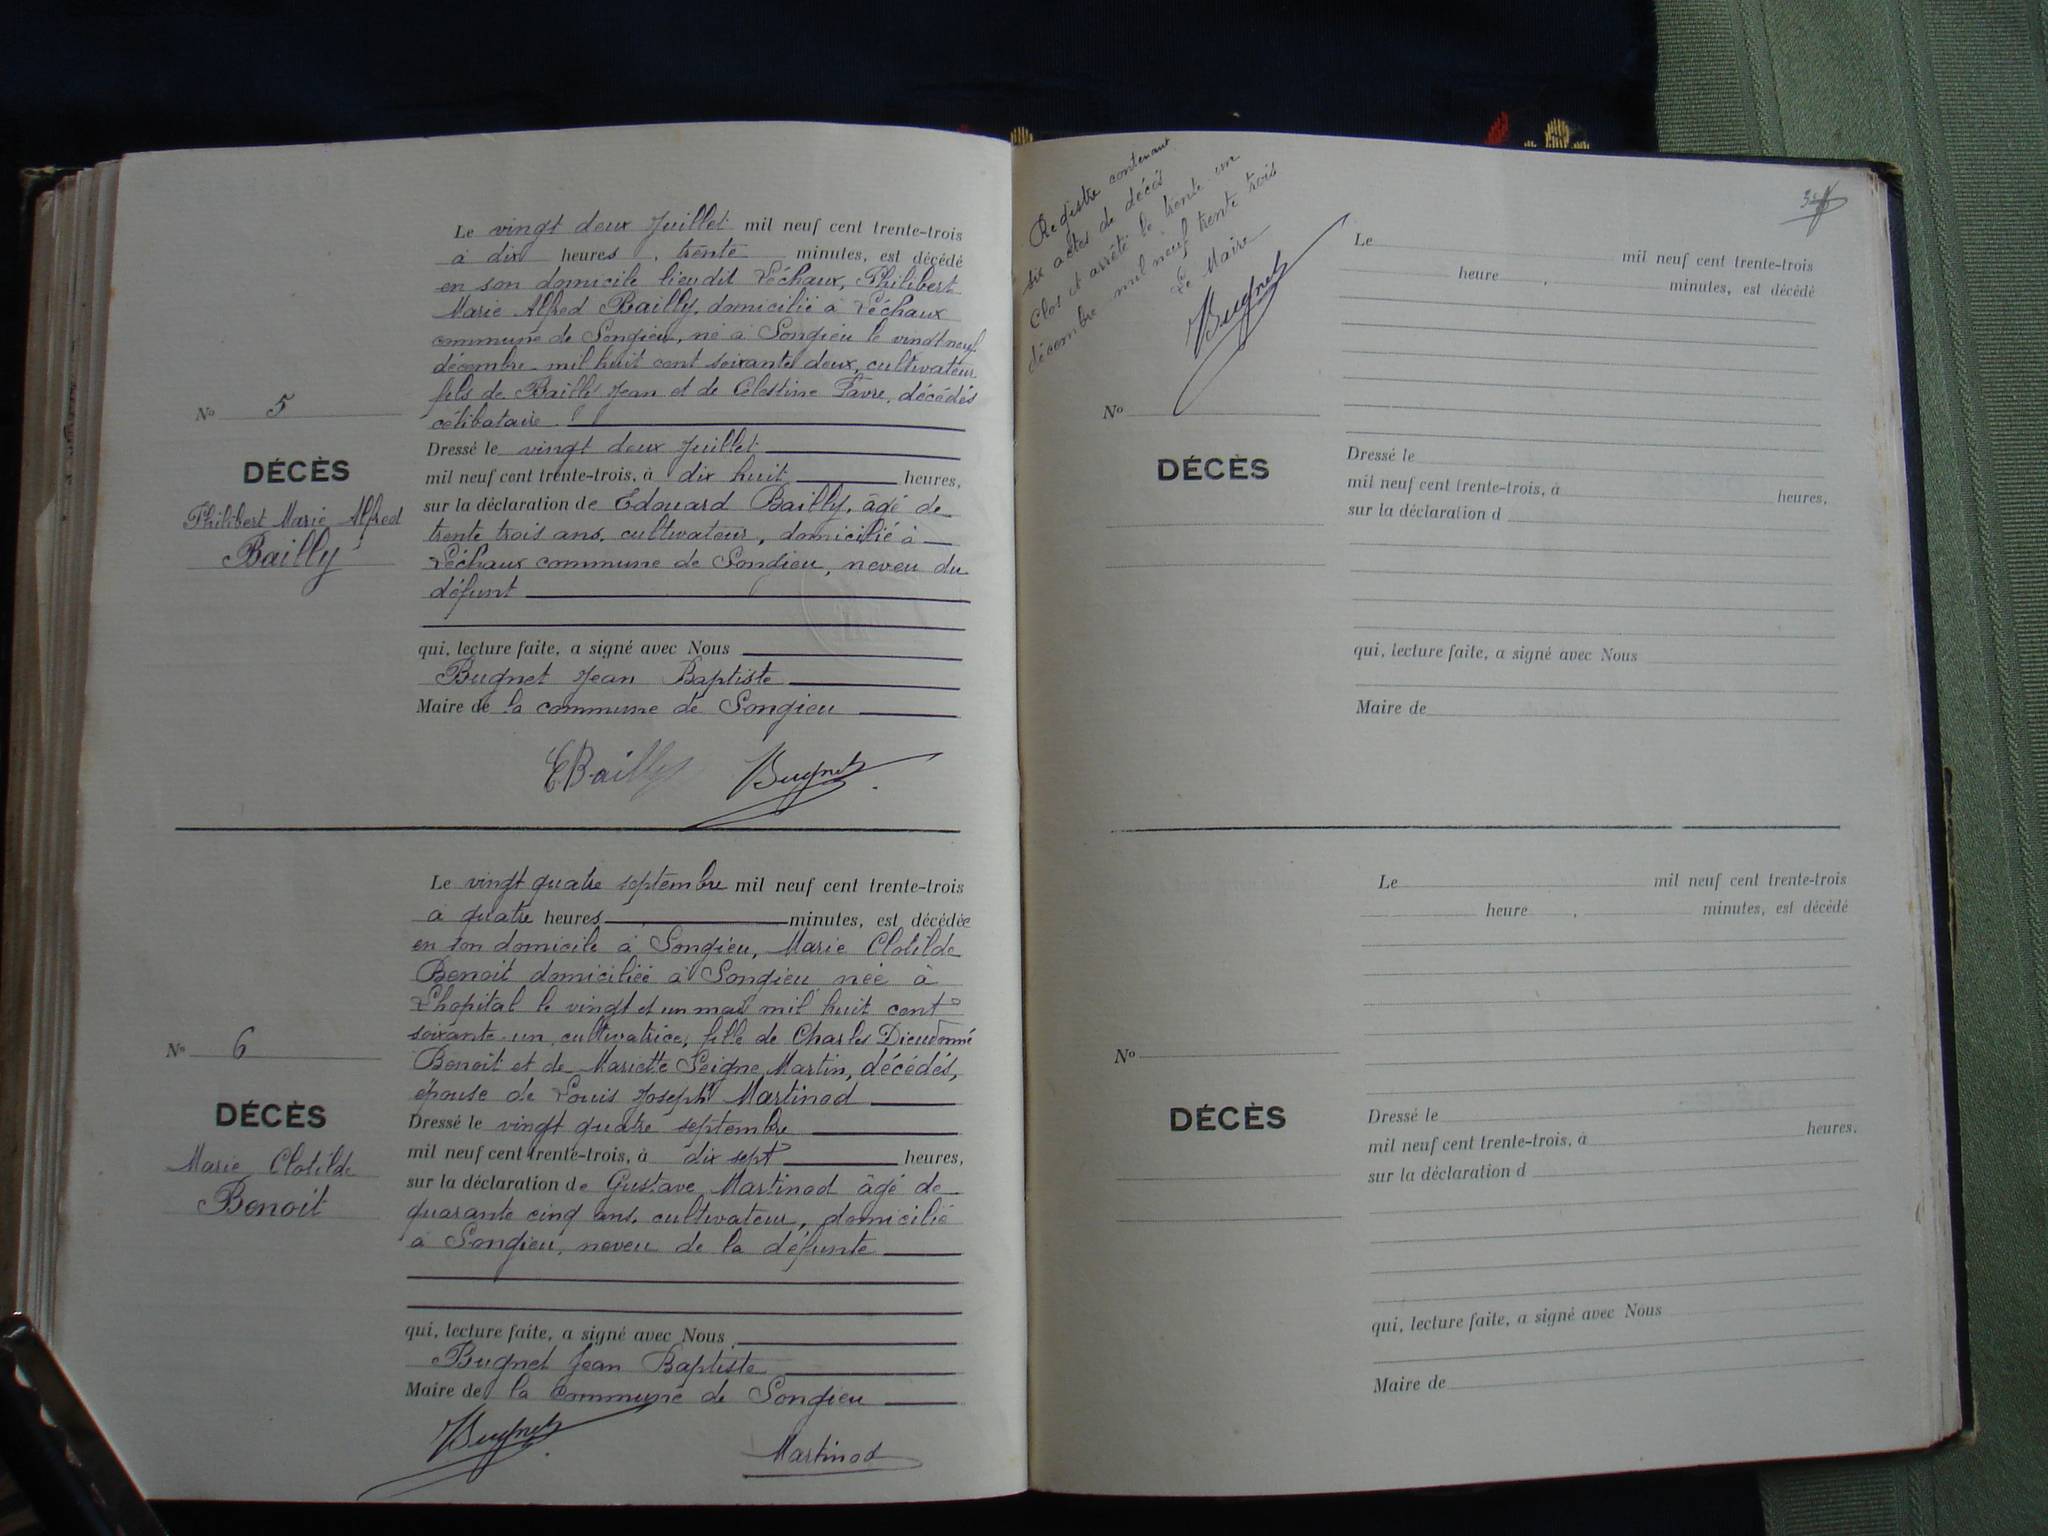 Le vingt deux Juillet mil neuf cent trente-trois
à dix heures, trente minutes, est décédé
en son domicile lieudit Léchaux, Philibert
Marie Alfred Bailly, domicilié à Léchaux
commune de Songieu, né à Songieu le vingt neuf
décembre mil huit cent soixante deux, cultivateur
fils de Bailly Jean et de Célestine Favre, décédés
célibataire.
No 5
DÉCÈS
Philibert Marie Alfred
Bailly
Dressé le vingt deux Juillet
mil neuf cent trente-trois, à dix huit heures,
sur la déclaration de Edouard Bailly, âgé de
trente trois ans, cultivateur, domicilié à
Léchaux commune de Songieu, neveu du
défunt
qui, lecture faite, a signé avec Nous
Bugnet Jean Baptiste
Maire de la commune de Songieu
EBailly Bugnet
Le vingt quatre septembre mil neuf cent trente-trois
à quatre heures minutes, est décédée
en son domicile à Songieu, Marie Clotilde
Benoit domiciliée à Songieu née à
Lhopital le vingt et un mai mil huit cent
soixante un, cultivatrice, fille de Charles Dieudonné
Benoit et de Mariette Seigne Martin, décédés,
épouse de Louis Joseph Martinod
No 6
DÉCÈS
Marie Clotilde
Benoit
Dressé le vingt quatre septembre
mil neuf cent trente-trois, à dix sept heures,
sur la déclaration de Gustave Martinod âgé de
quarante cinq ans, cultivateur, domicilié
à Songieu, neveu de la défunte
qui, lecture faite, a signé avec Nous
Bugnet Jean Baptiste
Maire de la commune de Songieu
Bugnet Martinod
Registre contenant
six actes de décès
Clos et arrêté le trente un
décembre mil neuf trente trois
Le Maire
Bugnet
Le mil neuf cent trente-trois
heure , minutes, est décédé
No
DÉCÈS
Dressé le
mil neuf cent trente-trois, à heures,
sur la déclaration d
qui, lecture faite, a signé avec Nous
Maire de
Le mil neuf cent trente-trois
heure , minutes, est décédé
No
DÉCÈS
Dressé le
mil neuf cent trente-trois, à heures,
sur la déclaration d
qui, lecture faite, a signé avec Nous
Maire de